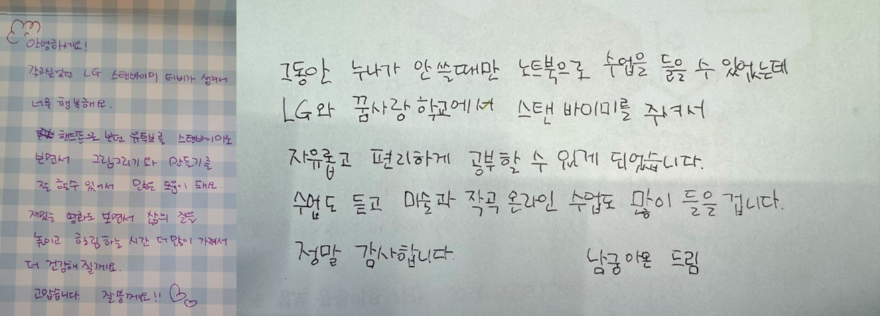 안녕하세요!
갖고싶었던 LG 스탠바이미 티비가 생겨서
너무 행복해요.
핸드폰으로 보던 유튜브를 스탠바이미로
보면서 그림그리기와 만들기를
잘 할수 있어서 많은 도움이 돼요.
재밌는 영화도 보면서 삶의 질을
높이고 힐링하는 시간 더 많이 가져서
더 건강해 질게요.
고맙습니다 잘 쓸게요!!
그동안 누나가 안 쓸때만 노트북으로 수업을 들을 수 있었는데
LG와 꿈사랑 학교에서 스탠 바이미를 주셔서
자유롭고 편리하게 공부할 수 있게 되었습니다.
수업도 듣고 미술과 작곡 온라인 수업도 많이 들을 겁니다.
정말 감사합니다 남궁아온 드림